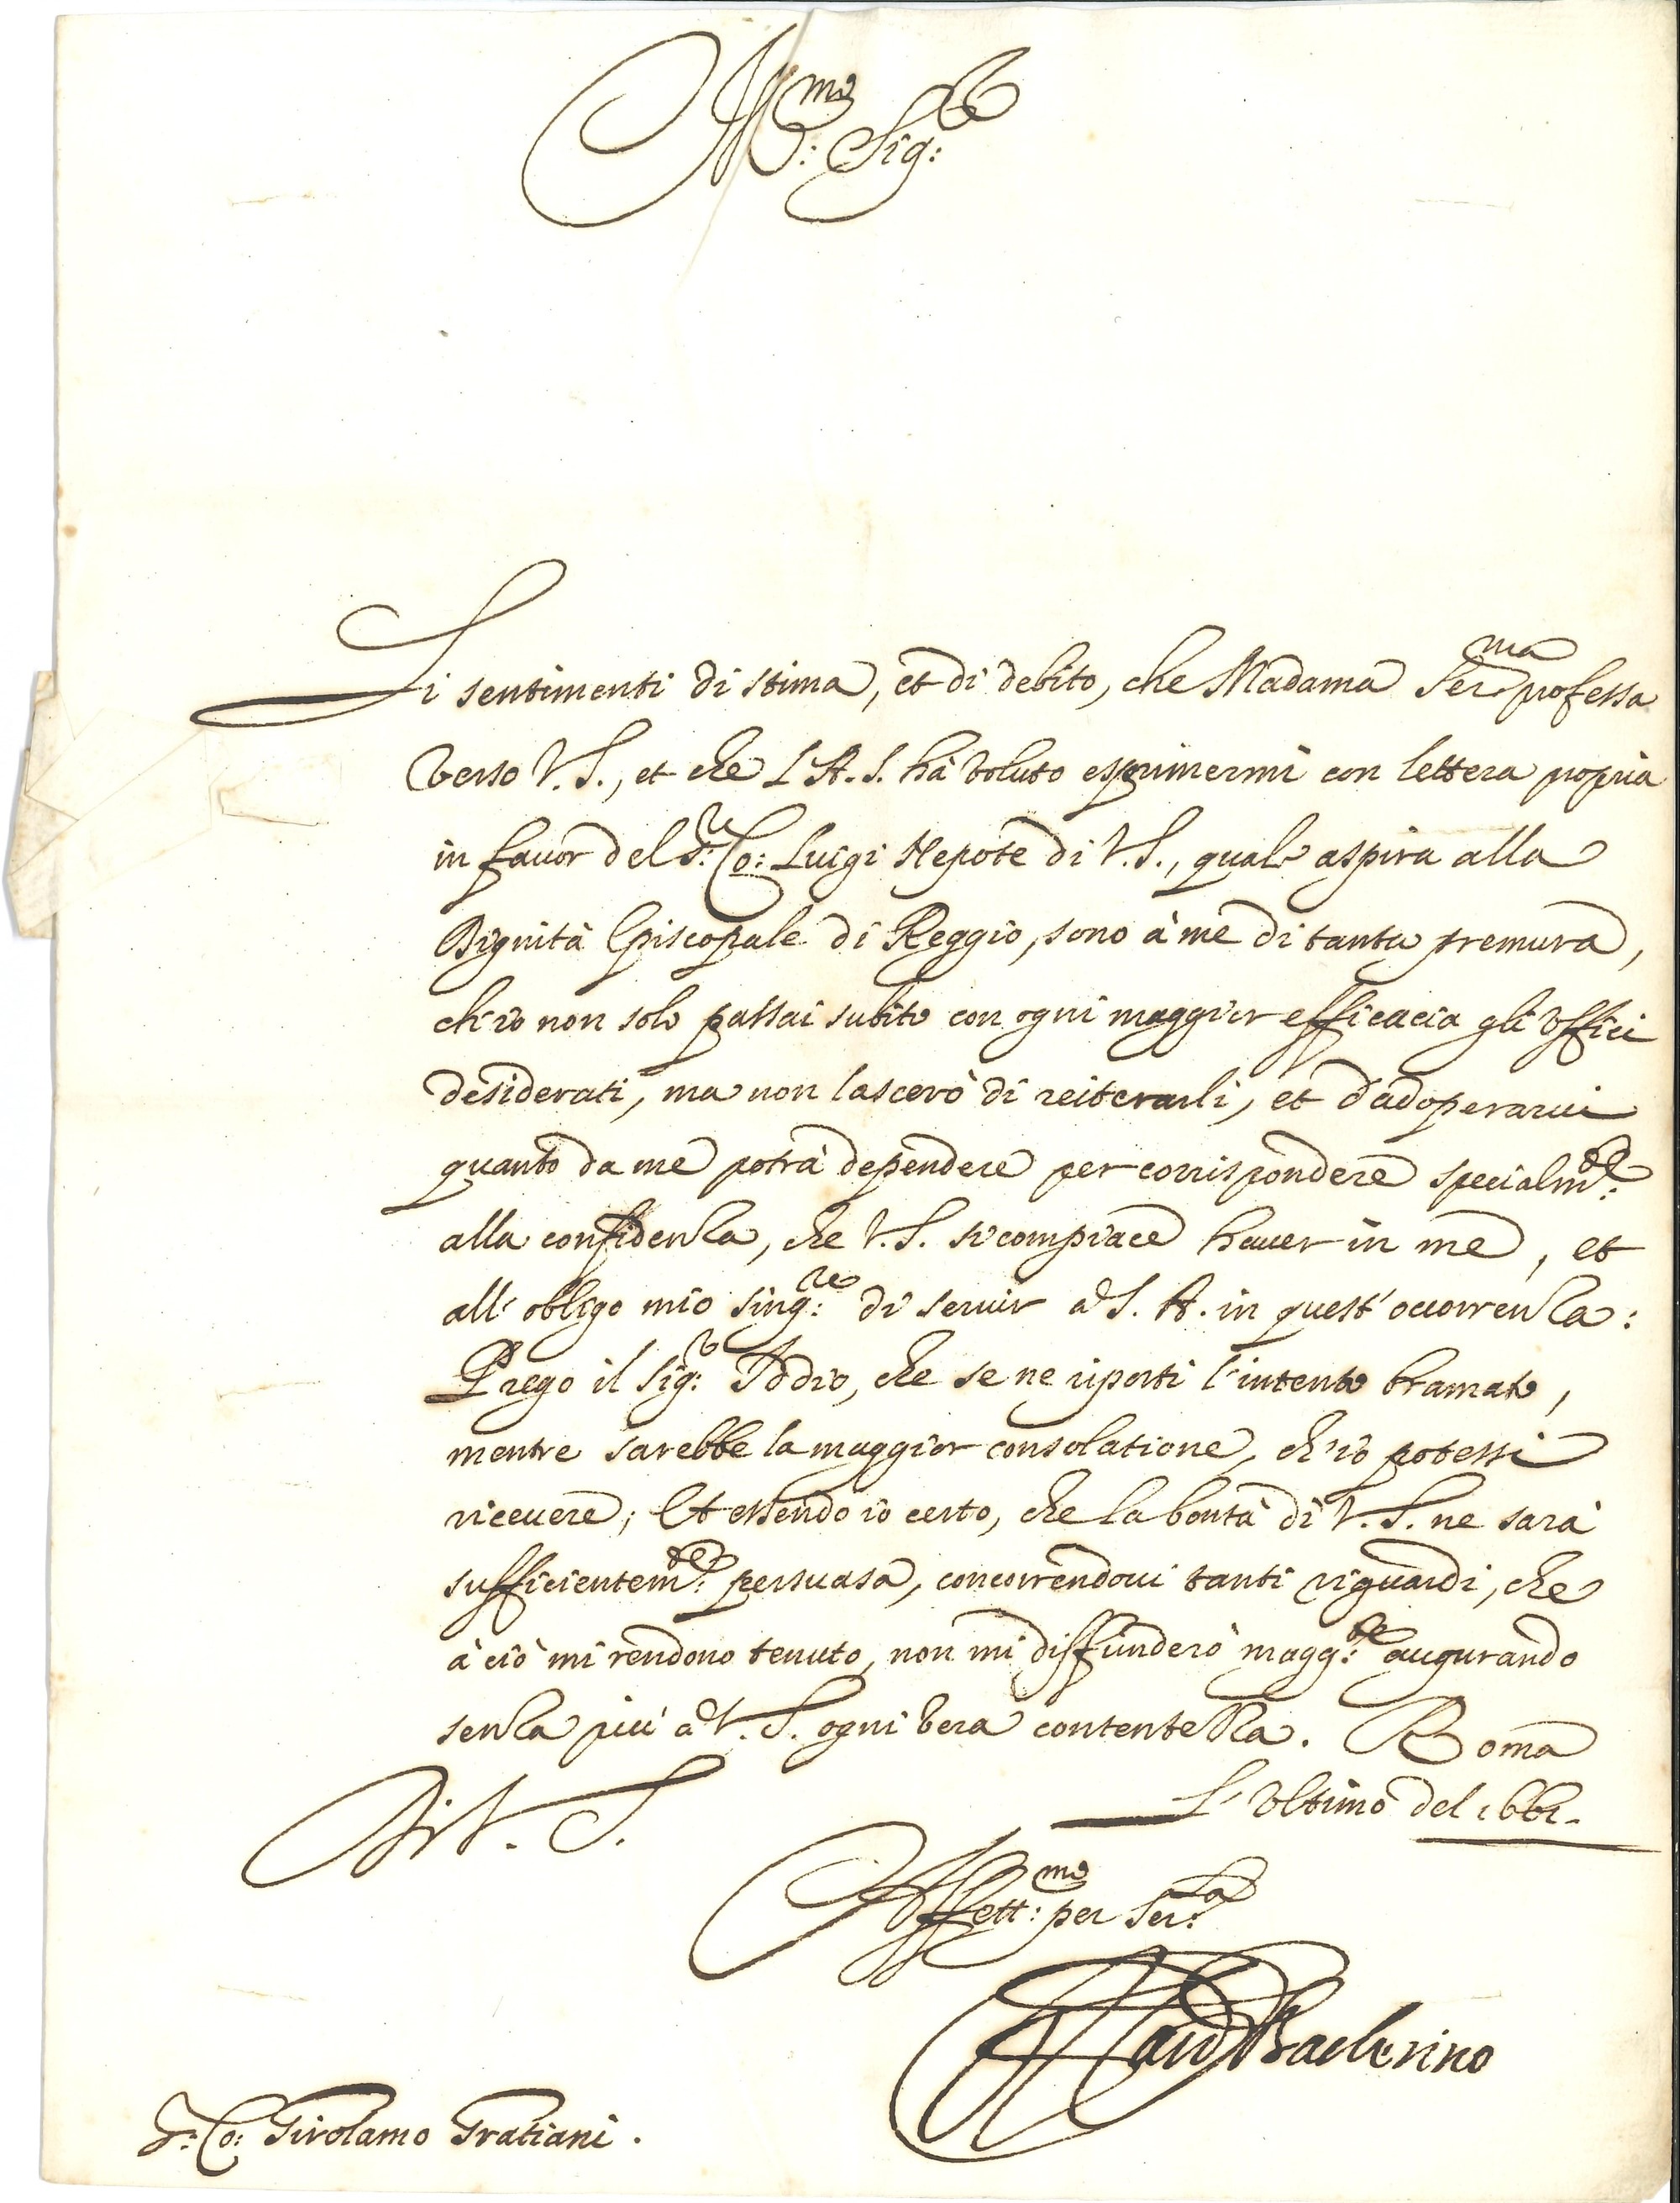 Ill.mo Sig.re
Li sentimenti di stima, et di debito, che Madama Ser.ma professa
verso V.S., et che L'A.S. hà voluto esprimermi con lettera propria
in favor del S.r Co: Luigi Nepote di V.S., quale aspira alla
Dignità Episcopale di Reggio, sono à me di tanta premura,
ch'io non solo passai subito con ogni maggior efficacia gli offici
desiderati, ma non lascerò di reiterarli, et d'adoperarvi
quanto da me potrà dependere per corrispondere specialm.te
alla confidenza, che V.S. si compiace haver in me, et
all'obligo mio sing.re di servir à S.A. in quest'occorrenza:
Prego il Sig.r Iddio, che se ne riporti l'intento bramato,
mentre sarebbe la maggior consolatione, ch'io potessi
ricevere; Et essendo io certo, che la bontà di V.S. ne sarà
sufficientem.te persuasa, concorrendovi tanti riguardi, che
à ciò mi rendono tenuto, non mi diffunderò magg.te augurando
senza più à V.S. ogni vera contentezza. Roma
L'ultimo del 1661.
Di V.S.
Affett.mo per Ser.la
Card Barberino
S.r Co: Girolamo Gratiani.